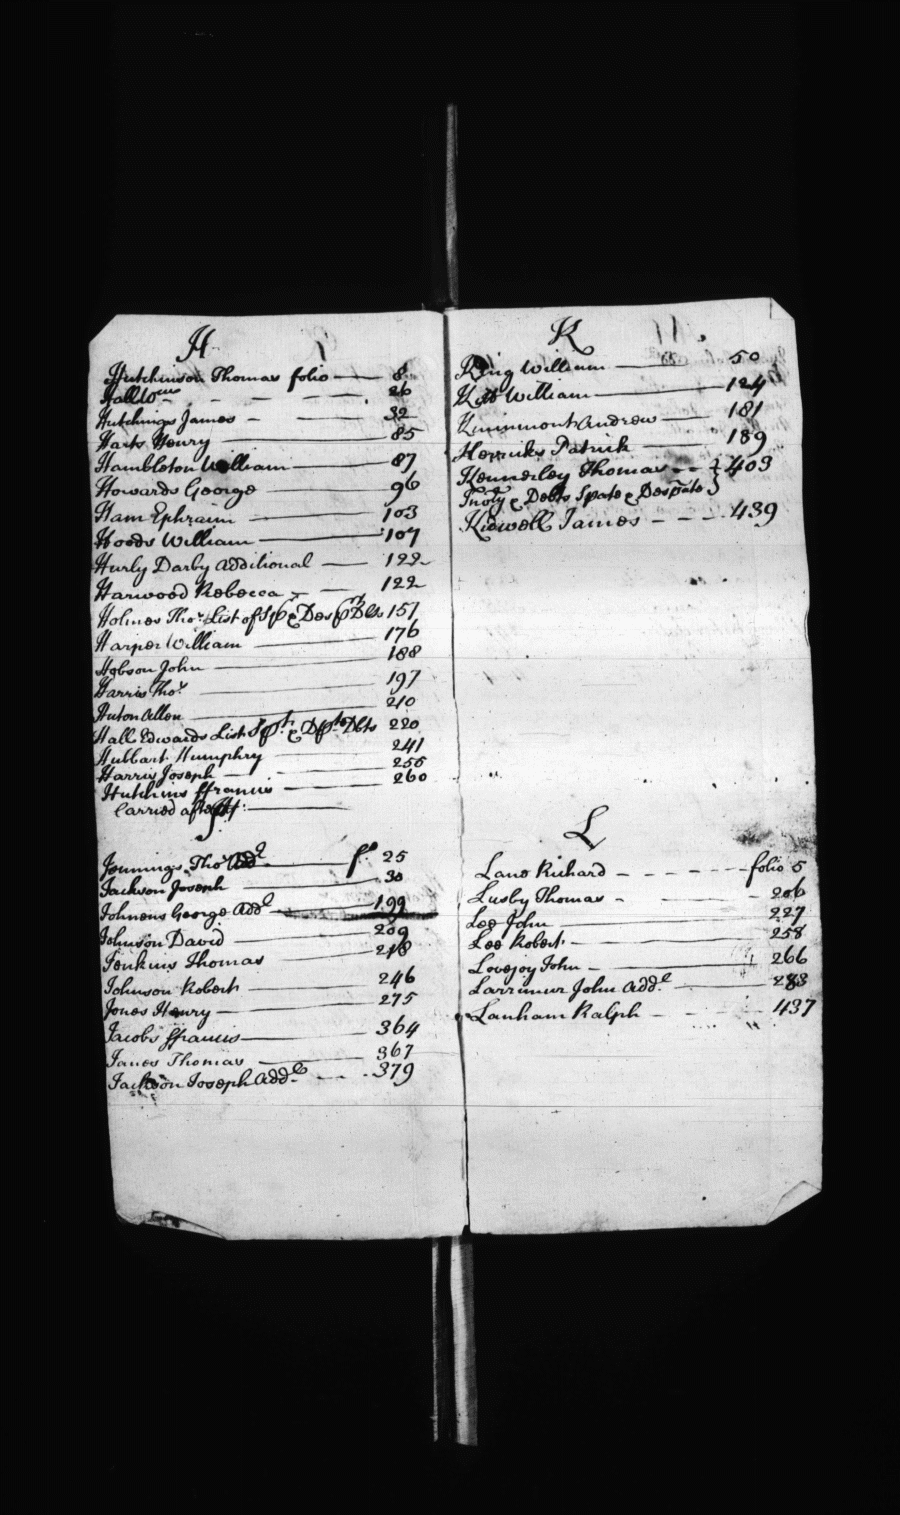 H
Hutchinson Thomas folio — 8
Hall Wm - - - - 26
Hutchings James - — 32
Harts Henry — 85
Hambleton William — 87
Howards George — 96
Ham Ephraim — 103
Hoods William — 107
Hurly Darby Additional — 122
Harwood Rebecca - — 122
Holmes Thos. List of Sp & Desp Dts 157
Harper William — 176
Hobson John — 188
Harris Thos. — 197
Huton Allen — 210
Hall Edwards List Spt. & Dspte Dbts 220
Hubbart Humphry — 241
Harris Joseph — 255
Hutchins ffrancis — 260
Carried after
J
Jennings Thos. Addl — fo. 25
Jackson Joseph — 30
Johnens George Addl — 199
Johnson David — 209
Jenkins Thomas — 218
Johnson Robert — 246
Jones Henry — 275
Jacobs ffrancis — 364
Janes Thomas — 367
Jackson Joseph Addl. - - - 379
K
King William — 50
William — 124
Kninmont Andrew — 181
Herricks Patrick — 189
Kennerley Thomas - - } 403
Invty & Debts Spate & Despate }
Kidwell James - - - 439
L
Lane Richard - - - - - folio 5
Lusby Thomas - - - 206
Lee John — 227
Lee Robert — 258
Lovejoy John — 266
Larrimur John Addl. — 283
Lanham Ralph - - - 437